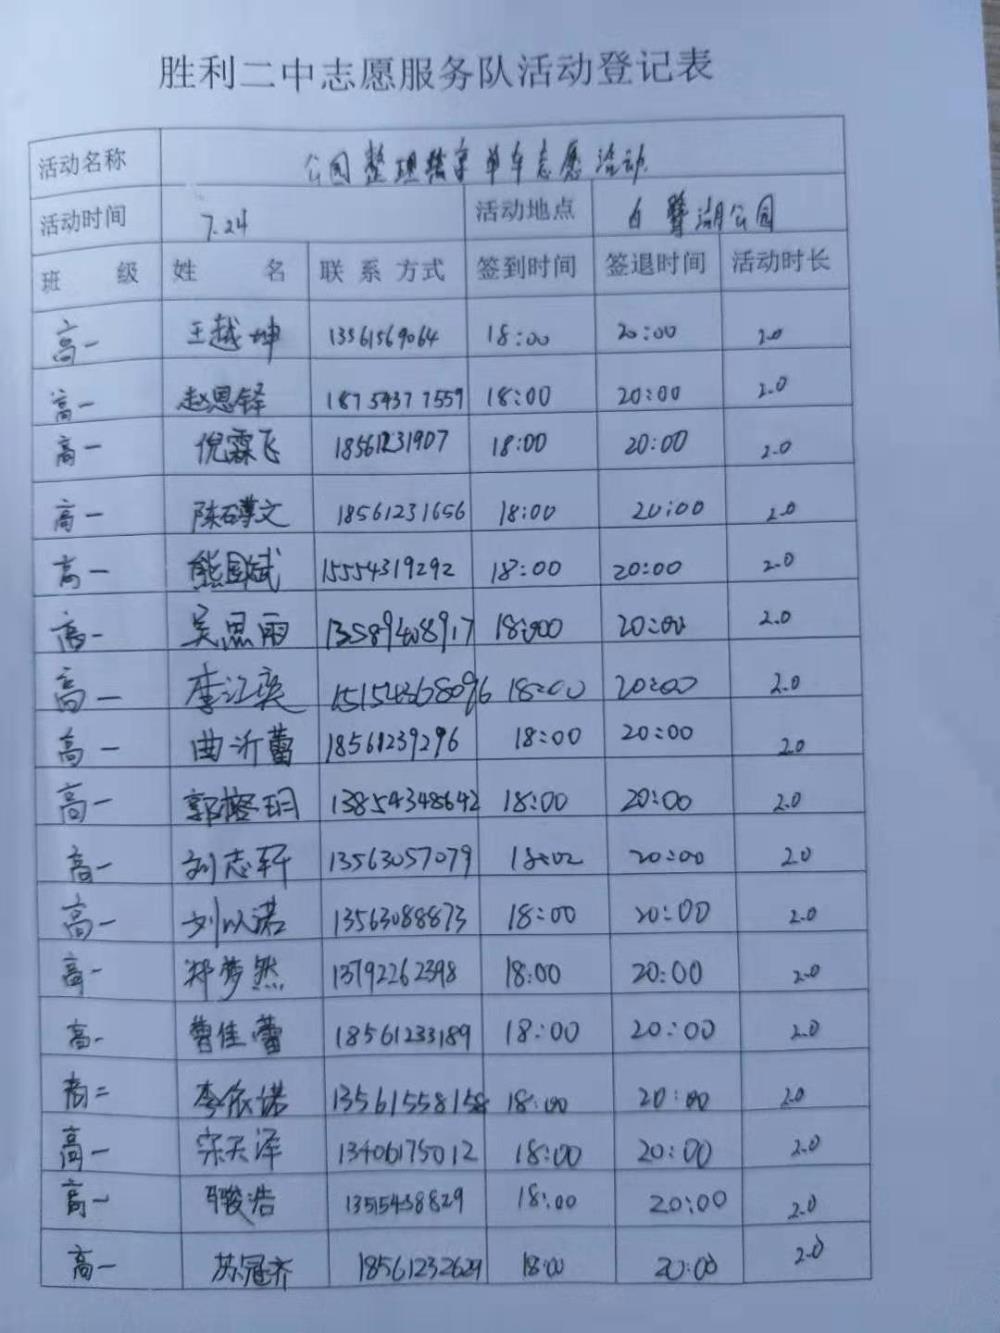 胜利二中志愿服务队活动登记表
活动名称 公园整理共享单车志愿活动
活动时间 7.24 活动地点 白鹭湖公园
班级 姓名 联系方式 签到时间 签退时间 活动时长
高一 王越坤 13561569064 18:00 20:00 2.0
高一 赵恩铎 18754377559 18:00 20:00 2.0
高一 倪霖飞 18561231907 18:00 20:00 2.0
高一 陈文 18561231656 18:00 20:00 2.0
高一 熊国斌 15554319292 18:00 20:00 2.0
高一 吴思雨 13589408917 18:00 20:00 2.0
高一 李江奕 15154368096 18:00 20:00 2.0
高一 曲沂蕾 18561239296 18:00 20:00 2.0
高一 郭榕玥 13854348642 18:00 20:00 2.0
高一 刘志轩 13563057079 18:02 20:00 2.0
高一 刘以诺 13563088873 18:00 20:00 2.0
高一 郑梦然 13792262398 18:00 20:00 2.0
高一 曹佳蕾 18561233189 18:00 20:00 2.0
高二 李依诺 13561558158 18:00 20:00 2.0
高一 宋天泽 13406175012 18:00 20:00 2.0
高一 骏浩 13515438829 18:00 20:00 2.0
高一 苏冠齐 18561232629 18:00 20:00 2.0